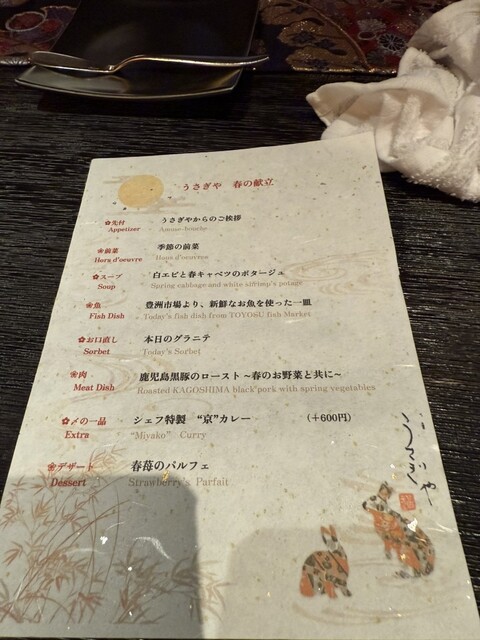 うさぎや 春の献立
✿先付 うさぎやからのご挨拶
Appetizer Amuse-bouche
❀前菜 季節の前菜
Hors d'oeuvre Hors d'oeuvres
✿スープ 白エビと春キャベツのポタージュ
Soup Spring cabbage and white shrimp's potage
❀魚 豊洲市場より、新鮮なお魚を使った一皿
Fish Dish Today's fish dish from TOYOSU fish Market
✿お口直し 本日のグラニテ
Sorbet Today's Sorbet
❀肉 鹿児島黒豚のロースト ~春のお野菜と共に~
Meat Dish Roasted KAGOSHIMA black pork with spring vegetables
✿〆の一品 シェフ特製 “京”カレー (+600円)
Extra “Miyako” Curry
❀デザート 春苺のパルフェ
Dessert Strawberry's Parfait
うさぎや